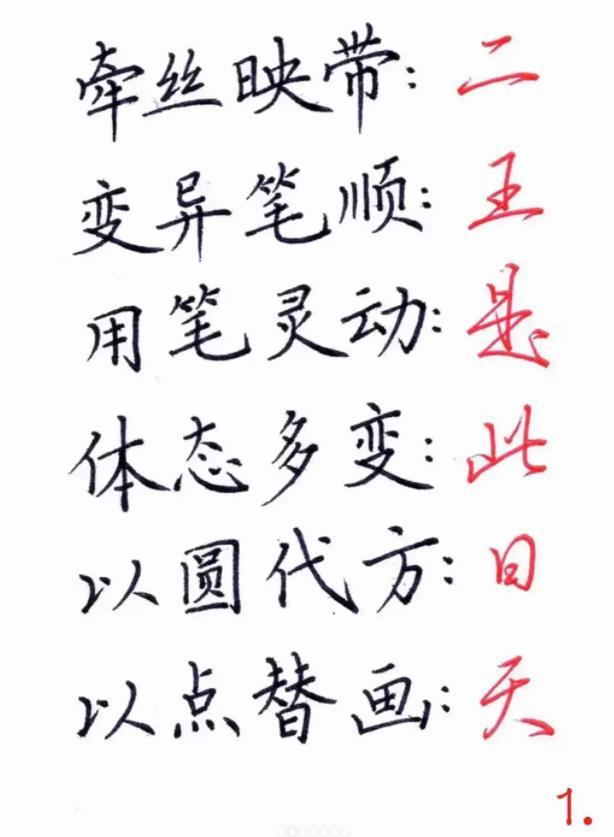 牵丝映带：二
变异笔顺：王
用笔灵动：是
体态多变：此
以圆代方：日
以点替画：天
1.